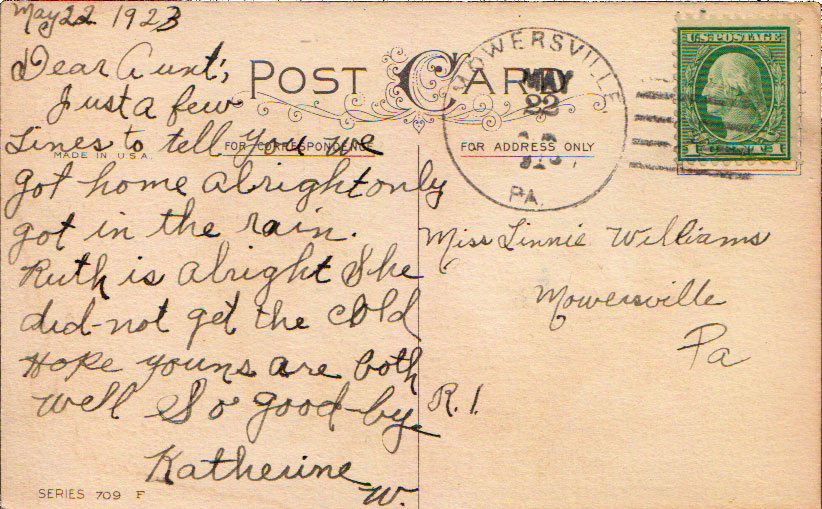 May 22 1923
Dear Aunt;
Just a few
Lines to tell you we
got home alright only
got in the rain.
Ruth is alright She
did-not get the cold
Hope youns are both
well So good-bye
Katherine
W.
POST CARD
FOR CORRESPONDENCE
MADE IN U.S.A.
FOR ADDRESS ONLY
SERIES 709 F
MOWERSVILLE
MAY
22
PA.
U.S. POSTAGE
Miss Linnie Williams
Mowersville
Pa
R.1.